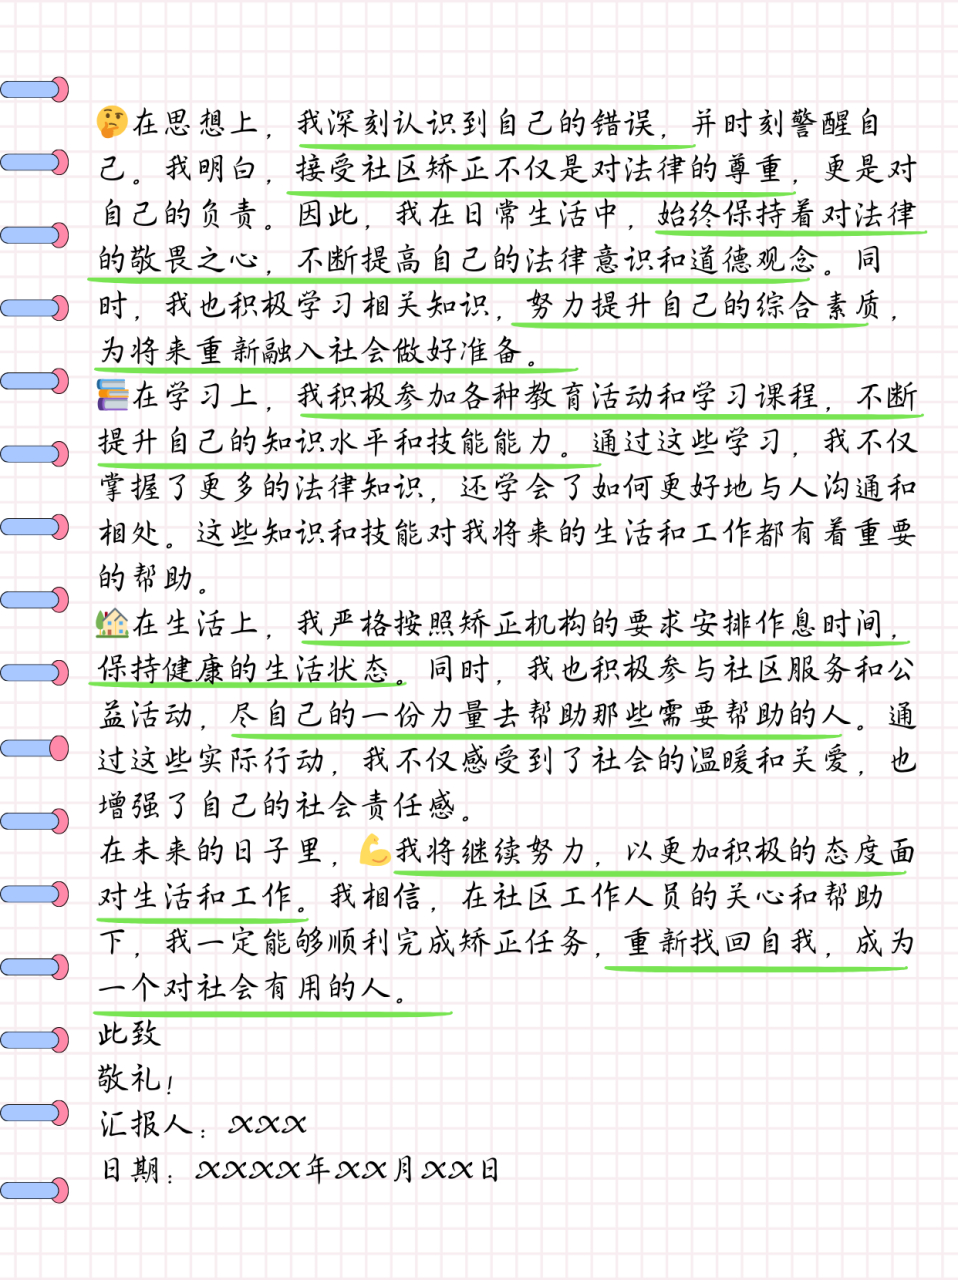 🤔在思想上，我深刻认识到自己的错误，并时刻警醒自
己。我明白，接受社区矫正不仅是对法律的尊重，更是对
自己的负责。因此，我在日常生活中，始终保持着对法律
的敬畏之心，不断提高自己的法律意识和道德观念。同
时，我也积极学习相关知识，努力提升自己的综合素质，
为将来重新融入社会做好准备。
📚在学习上，我积极参加各种教育活动和学习课程，不断
提升自己的知识水平和技能能力。通过这些学习，我不仅
掌握了更多的法律知识，还学会了如何更好地与人沟通和
相处。这些知识和技能对我将来的生活和工作都有着重要
的帮助。
🏡在生活上，我严格按照矫正机构的要求安排作息时间，
保持健康的生活状态。同时，我也积极参与社区服务和公
益活动，尽自己的一份力量去帮助那些需要帮助的人。通
过这些实际行动，我不仅感受到了社会的温暖和关爱，也
增强了自己的社会责任感。
在未来的日子里，💪我将继续努力，以更加积极的态度面
对生活和工作。我相信，在社区工作人员的关心和帮助
下，我一定能够顺利完成矫正任务，重新找回自我，成为
一个对社会有用的人。
此致
敬礼！
汇报人：XXX
日期：XXXX年XX月XX日